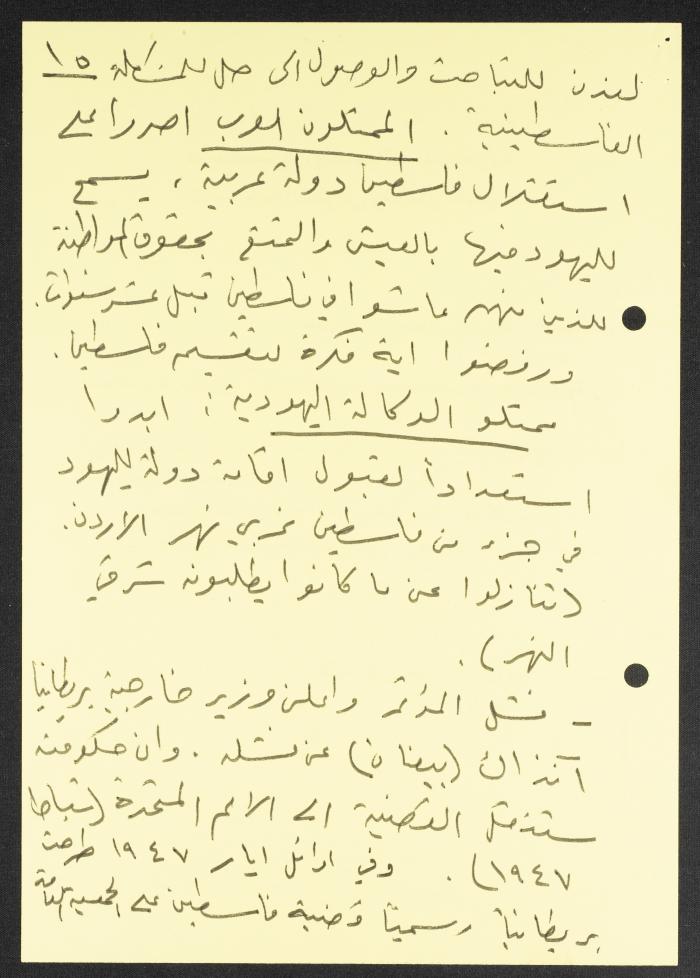 لندن للتباحث والوصول الى حل للمشكلة ١٥
الفلسطينية . الممثلون العرب اصروا على
استقلال فلسطين دولة عربية ، يسمح
لليهود فيها بالعيش والتمتع بحقوق المواطنة
للذين منهم عاشوا في فلسطين قبل عشر سنوات.
ورفضوا اية فكرة لتقسيم فلسطين .
ممثلو الوكالة اليهودية : ابدوا
استعداداً لقبول اقامة دولة لليهود
في جزء من فلسطين غربي نهر الاردن.
(تنازلوا عن ما كانوا يطلبونه شرقي
النهر) .
- فشل المؤتمر واعلن وزير خارجية بريطانيا
آنذاك (بيفان) عن فشله . وان حكومته
ستنقل القضية الى الامم المتحدة (شباط
١٩٤٧) . وفي اوائل ايار ١٩٤٧ طرحت
بريطانيا رسمياً قضية فلسطين على الجمعية العامة